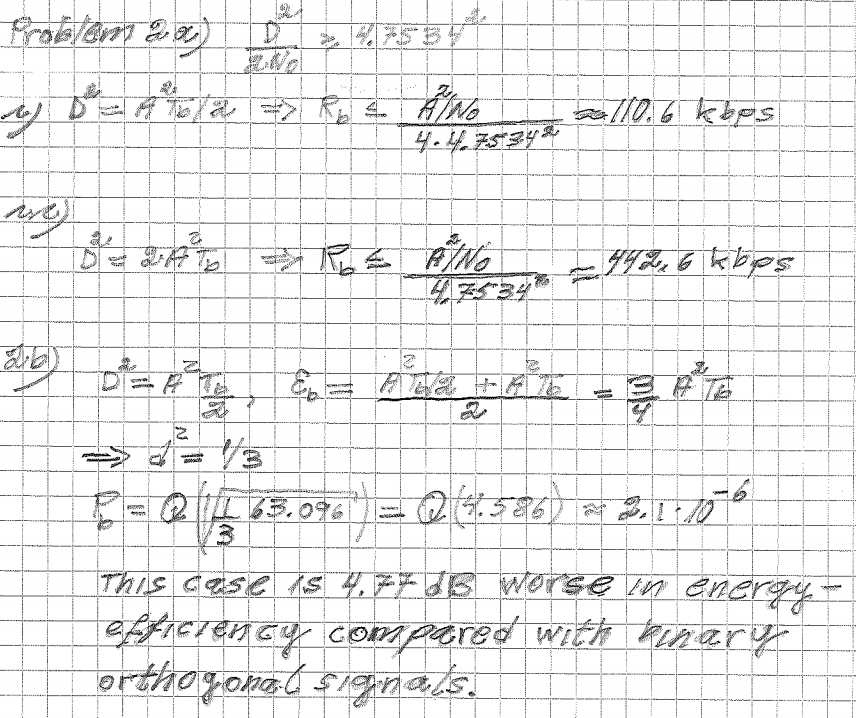 Problem 2a) D²/2N₀ ≥ 4.7534²
i) D² = A²T_b/2 ⇒ R_b ≤ (A²/N₀)/(4·4.7534²) ≈ 110.6 kbps
ii) D² = 2·A²T_b ⇒ R_b ≤ (A²/N₀)/(4.7534²) = 442.6 kbps
2b) D² = A² T_b/2, ℰ_b = (A²T_b/2 + A²T_b)/2 = 3/4 A²T_b
⇒ d² = 1/3
P_b = Q(√(1/3 63.096)) = Q(4.586) ≈ 2.1·10⁻⁶
This case is 4.77 dB worse in energy-
efficiency compared with binary
orthogonal signals.